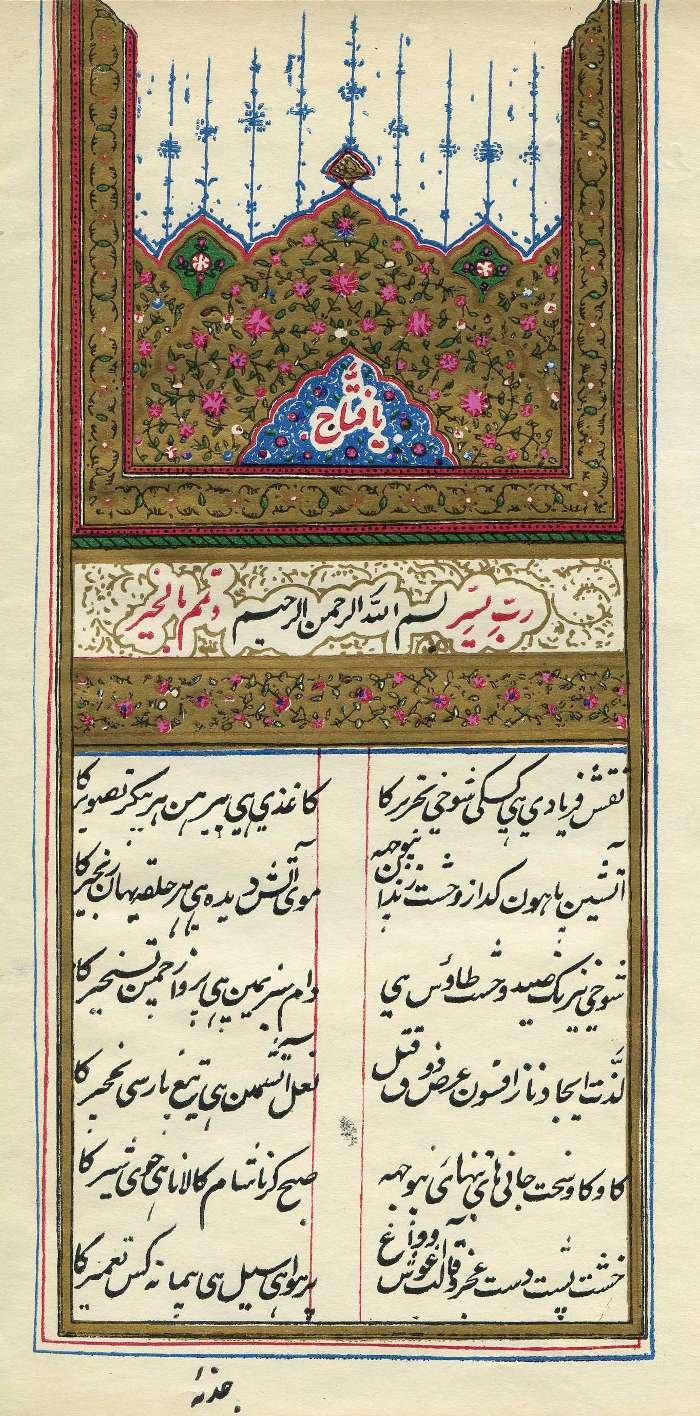 یا فتّاح
ربّ یسّر بسم الله الرحمن الرحیم و تمّم بالخیر
نقش فریادي هي کسکي شوخي تحریر کا کاغذي هي پیرهن هر پیکر تصویر کا
آتشین پا هون کداز وحشت زندان نپوچهه موي آتش دیده هي هر حلقه یهان زنجیر کا
شوخي نیرنک صید وحشت طاؤس هي دام سبزه مین هي پرواز چمن تسخیر کا
لذّت ایجاد ناز افسون عرض ذوق قتل نعل آتش مین هي تیغ یار سي نخچیر کا
کاو کاو سخت جاني هاي تنهائي نپوچهه صبح کرنا شام کا لانا هي جوي شیر کا
خشت پشت دست عجز و قالب آغوش وداع پر هوا هي سیل سي پیمانه کس تعمیر کا
جذبۂ